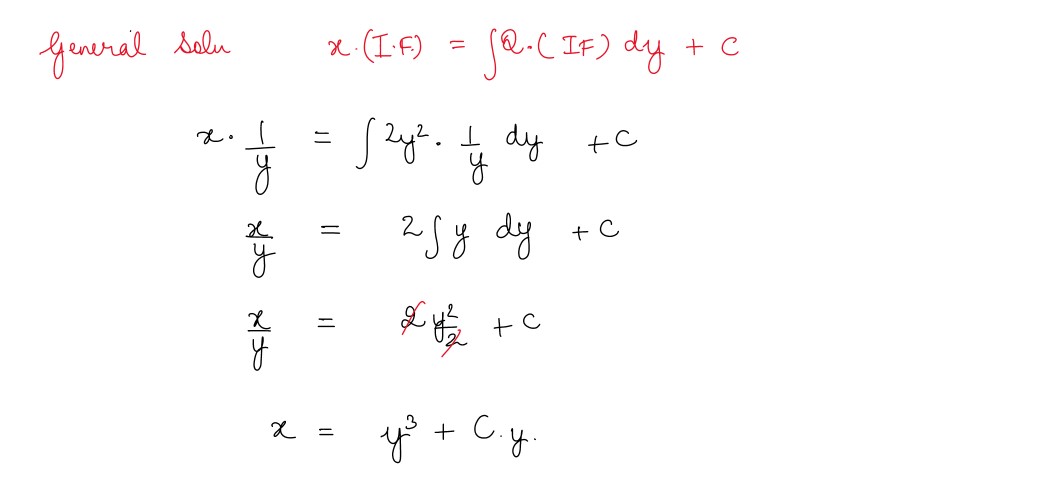 General Solu x.(I.F.) = ∫Q.(IF) dy + C
x. 1/y = ∫ 2y². 1/y dy + C
x/y = 2∫y dy + C
x/y = 2 y²/2 + C
x = y³ + C.y.